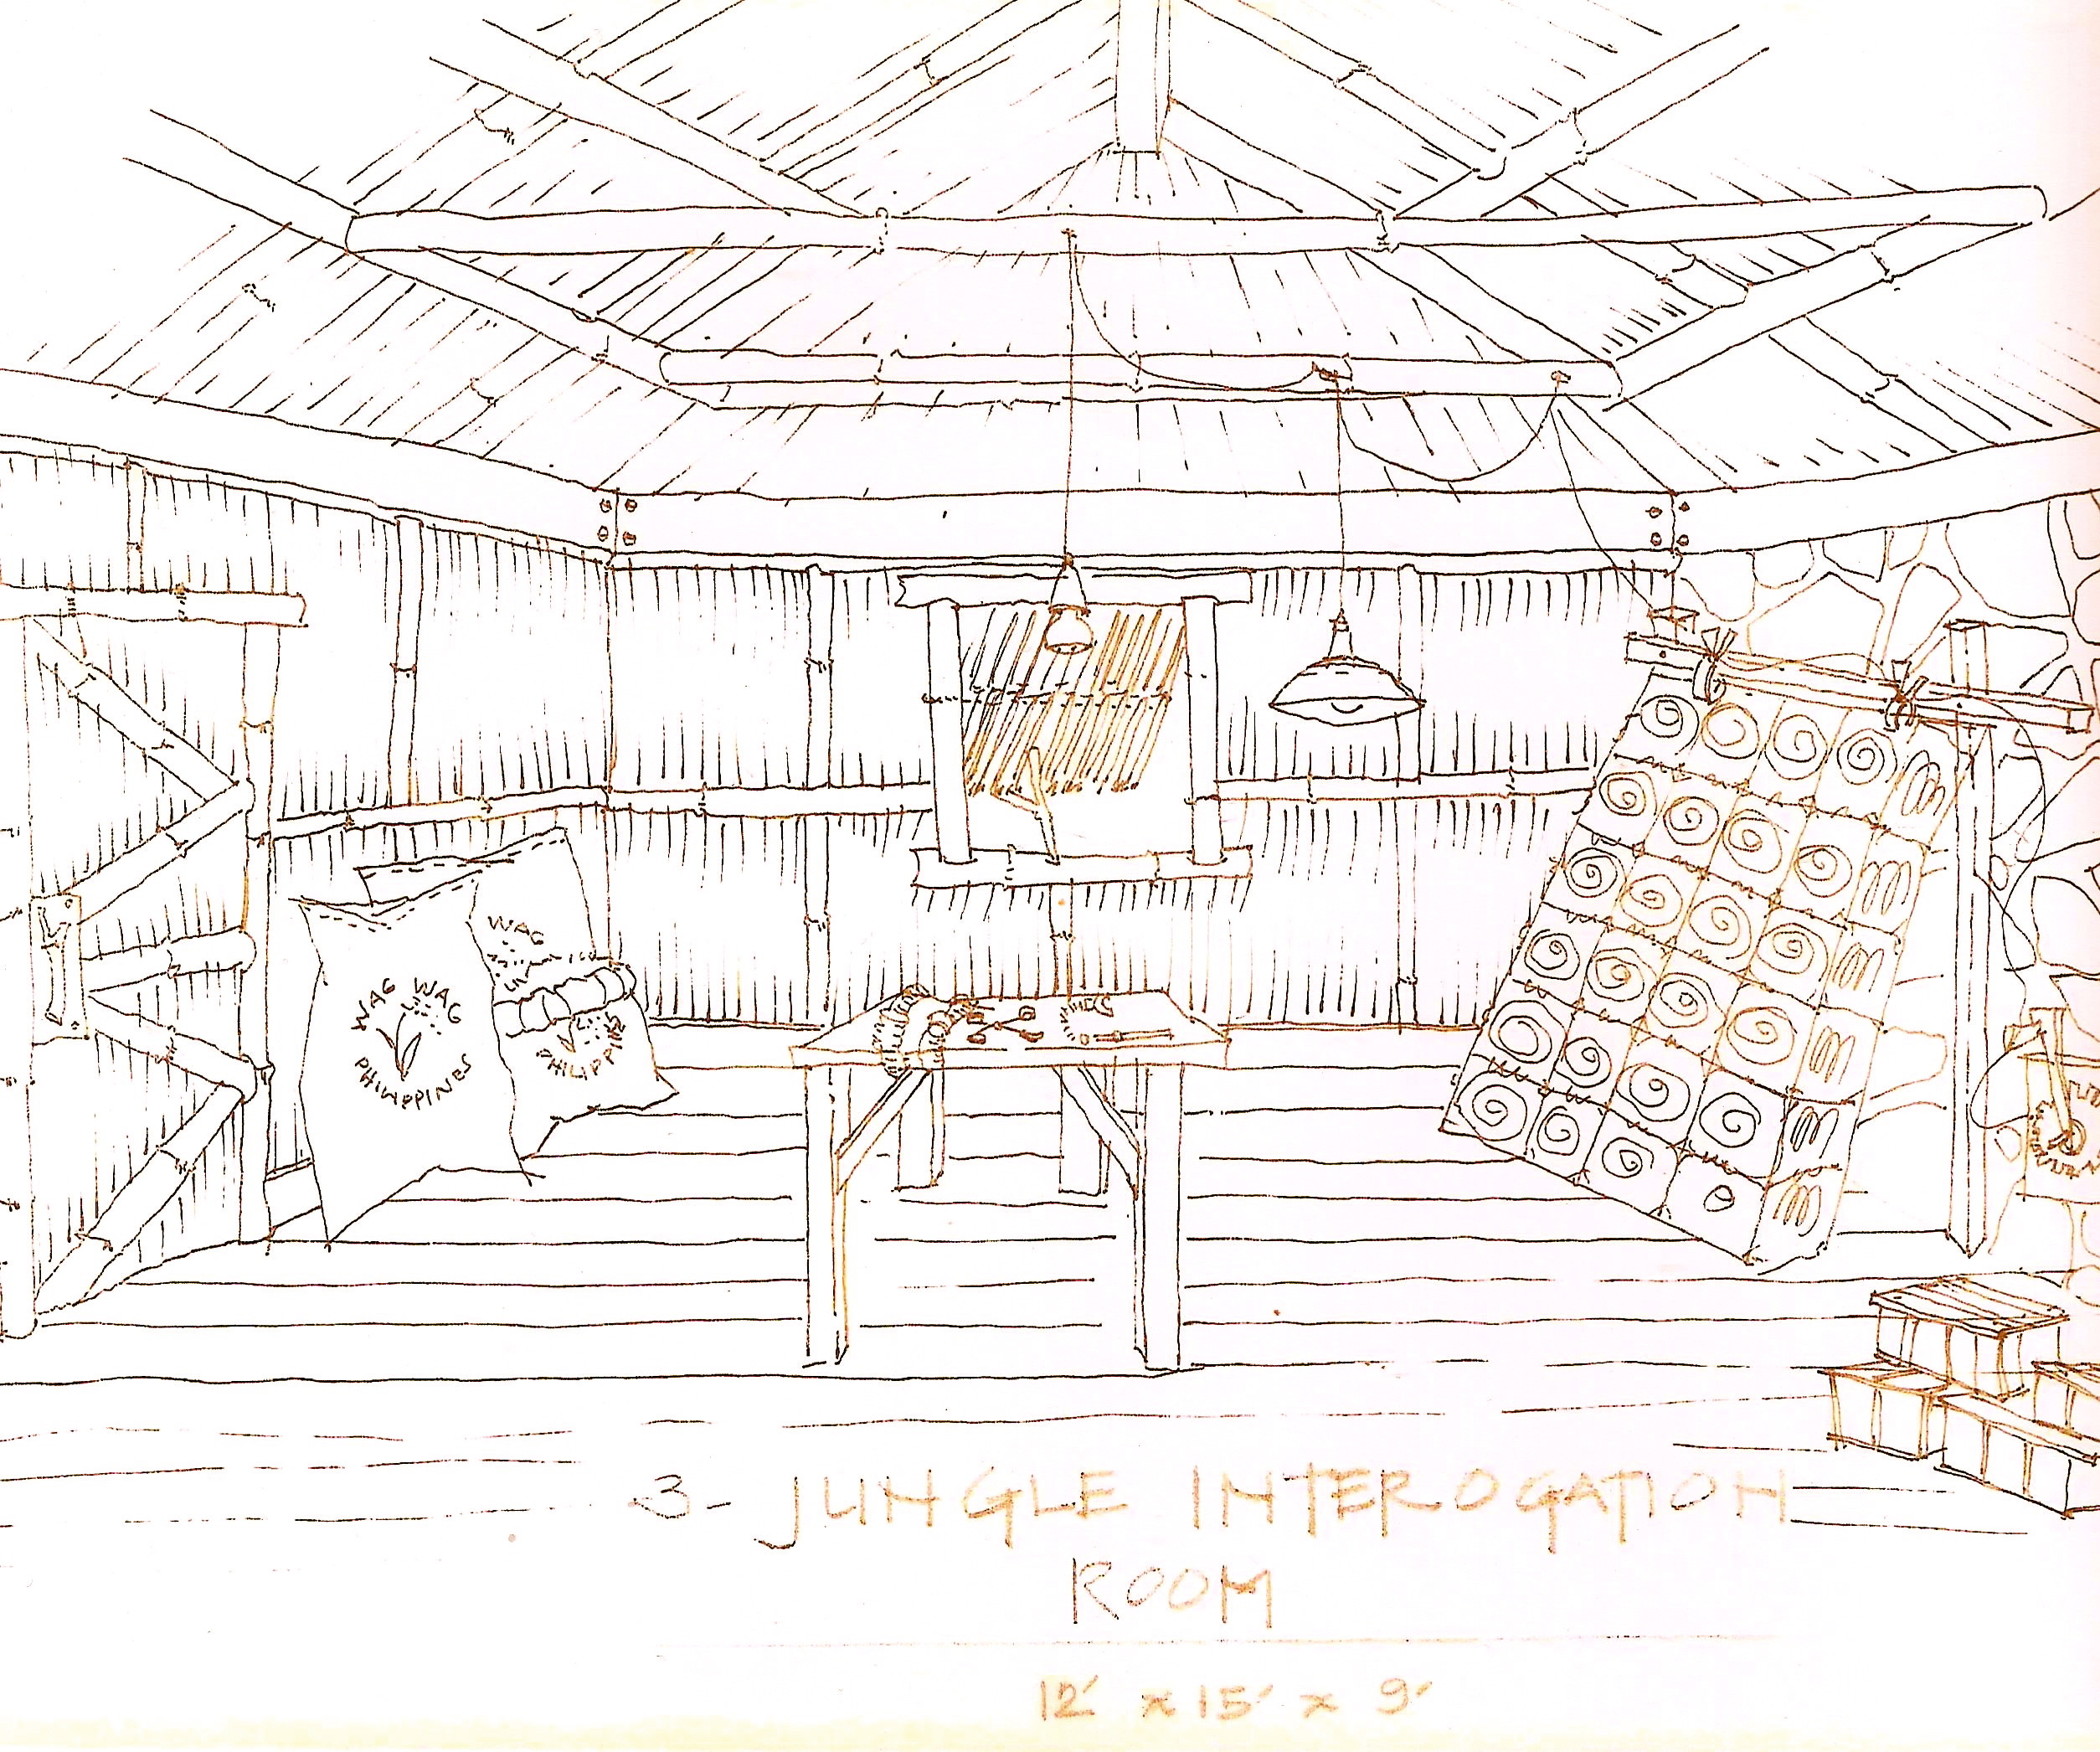 WAG WAG
PHILIPPINES
WAG
PHILIPPINES
3- JUNGLE INTEROGATION
ROOM
12' x 15' x 9'